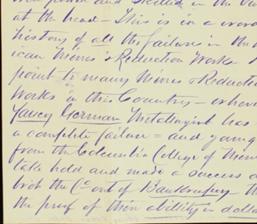 at the head - This is in a word
history of all the failures in the
ican Mines & Reduction Works -
point to many Mines & Reduction
Works in this Country - where
Fancy German Metallurgist has
a complete failure - and young
from the Columbia College of Mines
take hold and made a success
the Court of Bankruptcy
the proof of their ability in dollars